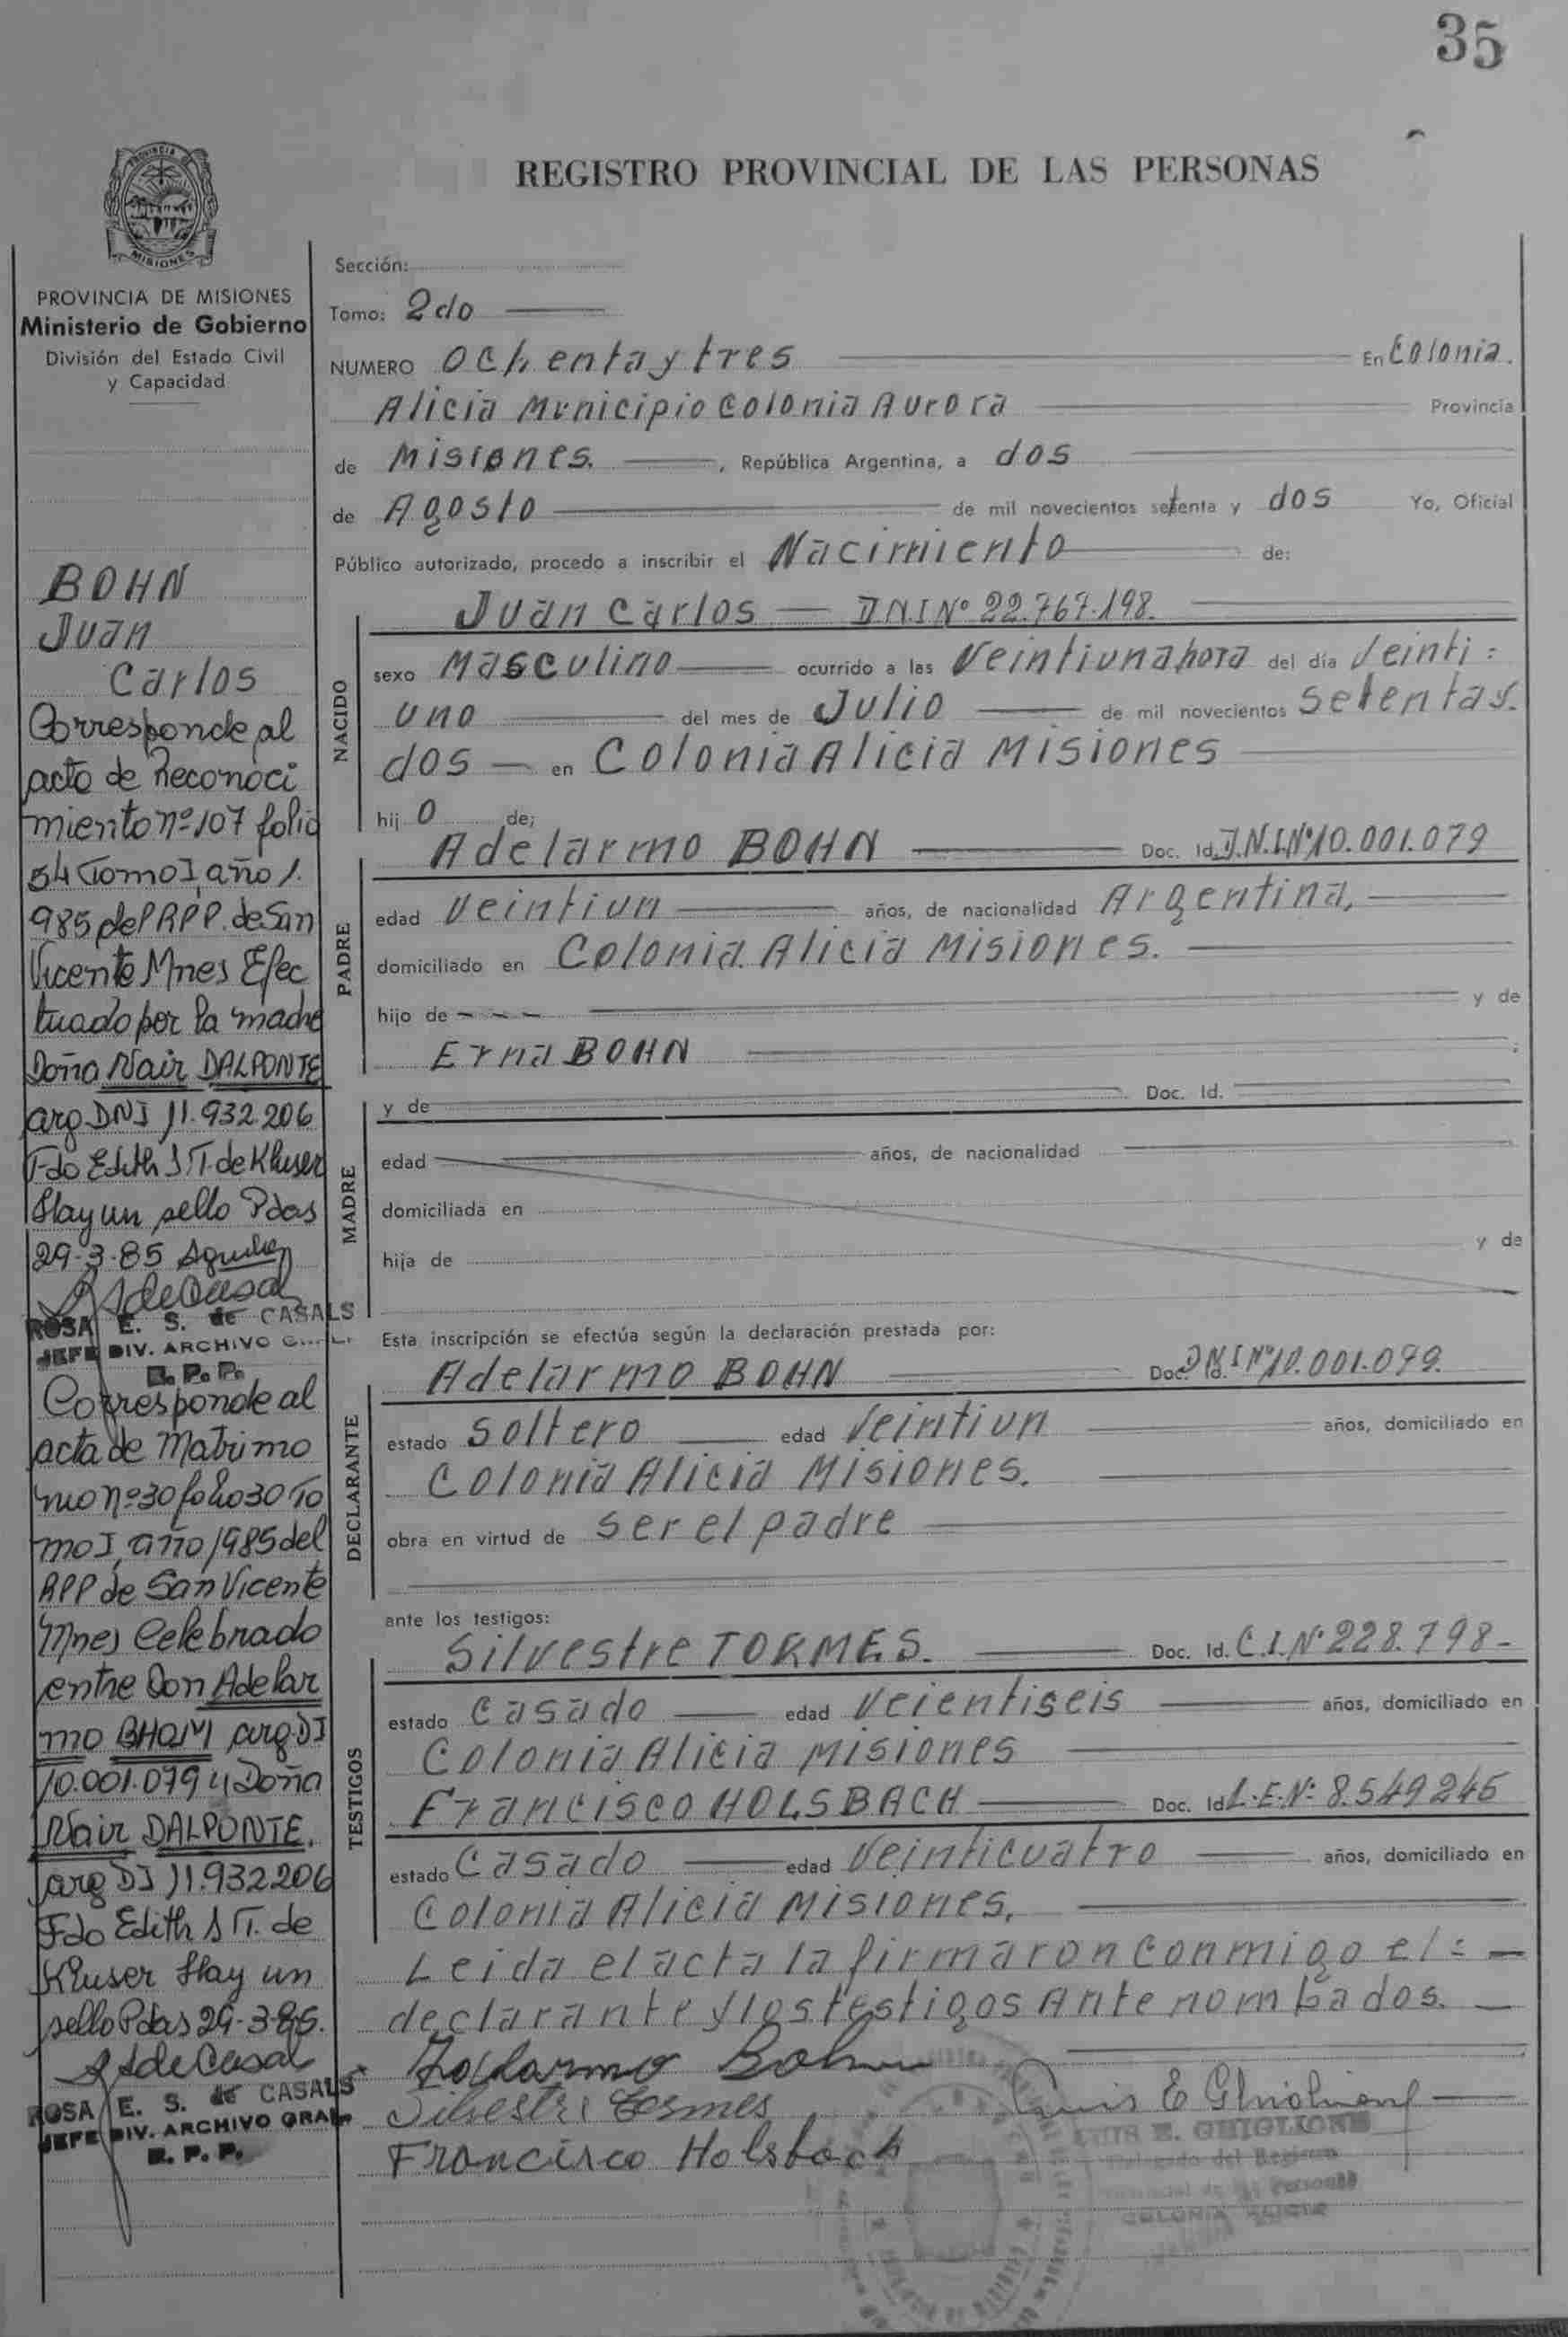 35
REGISTRO PROVINCIAL DE LAS PERSONAS
PROVINCIA DE
MISIONES
PROVINCIA DE MISIONES
Ministerio de Gobierno
División del Estado Civil
y Capacidad
BOHN
Juan
Carlos
Corresponde al
acto de Reconoci
miento nº 107 folio
54 Tomo I, año 1.
985 del RPP. de San
Vicente Mnes Efec
tuado por la madre
Doña Nair DALPONTE
arg DNI 11.932.206
Fdo Edith S.T. de Kluser
Hay un sello Pdas
29-3-85
ROSA E. S. de CASALS
JEFE DIV. ARCHIVO
R. P. P.
Corresponde al
acta de Matrimo
nio nº 30 folio 30 To
mo I, año 1985 del
RPP de San Vicente
Mnes Celebrado
entre Don Adelar
mo BHOM arg. DI
10.001.079 y Doña
Nair DALPONTE.
arg DI 11.932206
Fdo Edith S T. de
Kluser Hay un
sello Pdas 29-3-85.
ROSA E. S. de CASALS
JEFE DIV. ARCHIVO GRAL.
R. P. P.
Sección:
Tomo: 2do
NUMERO Ochenta y tres En Colonia.
Alicia Municipio Colonia Aurora Provincia
de Misiones. , República Argentina, a dos
de Agosto de mil novecientos setenta y dos Yo, Oficial
Público autorizado, procedo a inscribir el Nacimiento de:
NACIDO
Juan Carlos — D.N.I Nº 22.767.198.
sexo Masculino ocurrido a las Veintiuna hora del día Veinti=
uno del mes de Julio de mil novecientos setenta y.
dos — en Colonia Alicia Misiones
hij o de;
PADRE
Adelarmo BOHN Doc. Id. D.N.I.Nº 10.001.079
edad Veintiun años, de nacionalidad Argentina,
domiciliado en Colonia Alicia Misiones.
hijo de - - - y de
Erna BOHN ;
MADRE
y de Doc. Id.
edad años, de nacionalidad
domiciliada en
hija de y de
Esta inscripción se efectúa según la declaración prestada por:
DECLARANTE
Adelarmo BOHN Doc. Id. DNI Nº 10.001.079.
estado Soltero edad Veintiun años, domiciliado en
Colonia Alicia Misiones.
obra en virtud de ser el padre
ante los testigos:
TESTIGOS
Silvestre TORMES. Doc. Id. C.I.Nº 228.798-
estado Casado edad Veientiseis años, domiciliado en
Colonia Alicia Misiones
Francisco HOLSBACH Doc. Id L.E.Nº 8.549245
estado Casado edad Veinticuatro años, domiciliado en
Colonia Alicia Misiones.
Leida el acta la firmaron conmigo el= —
declarante y los testigos Ante nombados. —
Adelarmo Bohn
Silvestre Tormes
Francisco Holsbach
LUIS E. GHIGLIONE
Delegado del Registro
Provincial de las Personas
COLONIA ALICIA